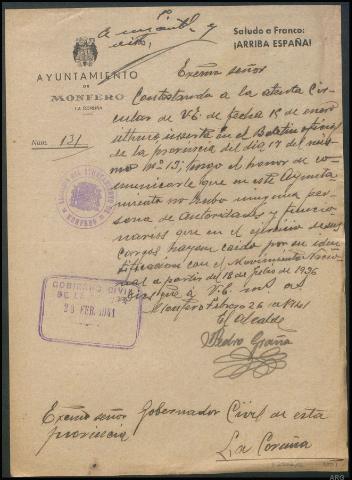 a su ante y
vito.
Saludo a Franco:
¡ARRIBA ESPAÑA!
AYUNTAMIENTO
DE
MONFERO
LA CORUÑA
Núm. 131
Excmo señor
Contestando a la atenta Cir-
cular de V.E. de fecha 15 de enero
ultimo, inserta en el Boletin oficial
de la provincia del dia 17 del mis-
mo nº 13; tengo el honor de co-
municarle que en este Ayunta-
miento no hubo ninguna per-
sona de autoridades y funcio-
narios que en el ejercicio de sus
cargos hayan caido por su iden-
tificacion con el Movimiento Nacio-
nal a partir del 18 de Julio de 1936
Dios gue a V.E. m. as
Monfero Febrero 26 de 1941
El Alcalde
Pedro Graña
GOBIERNO CIVIL
DE LA
28 FEB. 1941
Excmo señor Gobernador Civil de esta
provincia
La Coruña
ARG